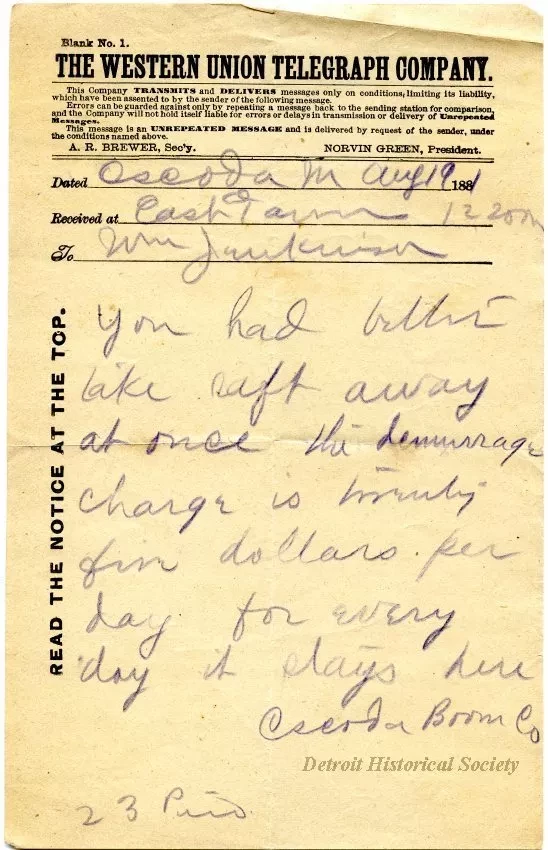 Blank No. 1.
THE WESTERN UNION TELEGRAPH COMPANY.
This Company TRANSMITS and DELIVERS messages only on conditions, limiting its liability,
which have been assented to by the sender of the following message.
Errors can be guarded against only by repeating a message back to the sending station for comparison,
and the Company will not hold itself liable for errors or delays in transmission or delivery of Unrepeated
Messages.
This message is an UNREPEATED MESSAGE and is delivered by request of the sender, under
the conditions named above.
A. R. BREWER, Sec'y. NORVIN GREEN, President.
Dated Oscoda M Aug 19 1881
Received at East Tawas 12 20 pm
To Wm Jenkinson
READ THE NOTICE AT THE TOP.
You had better
take raft away
at once the demurrage
charge is twenty
five dollars per
day for every
day it stays here
Oscoda Boom Co
Detroit Historical Society
23 Paid